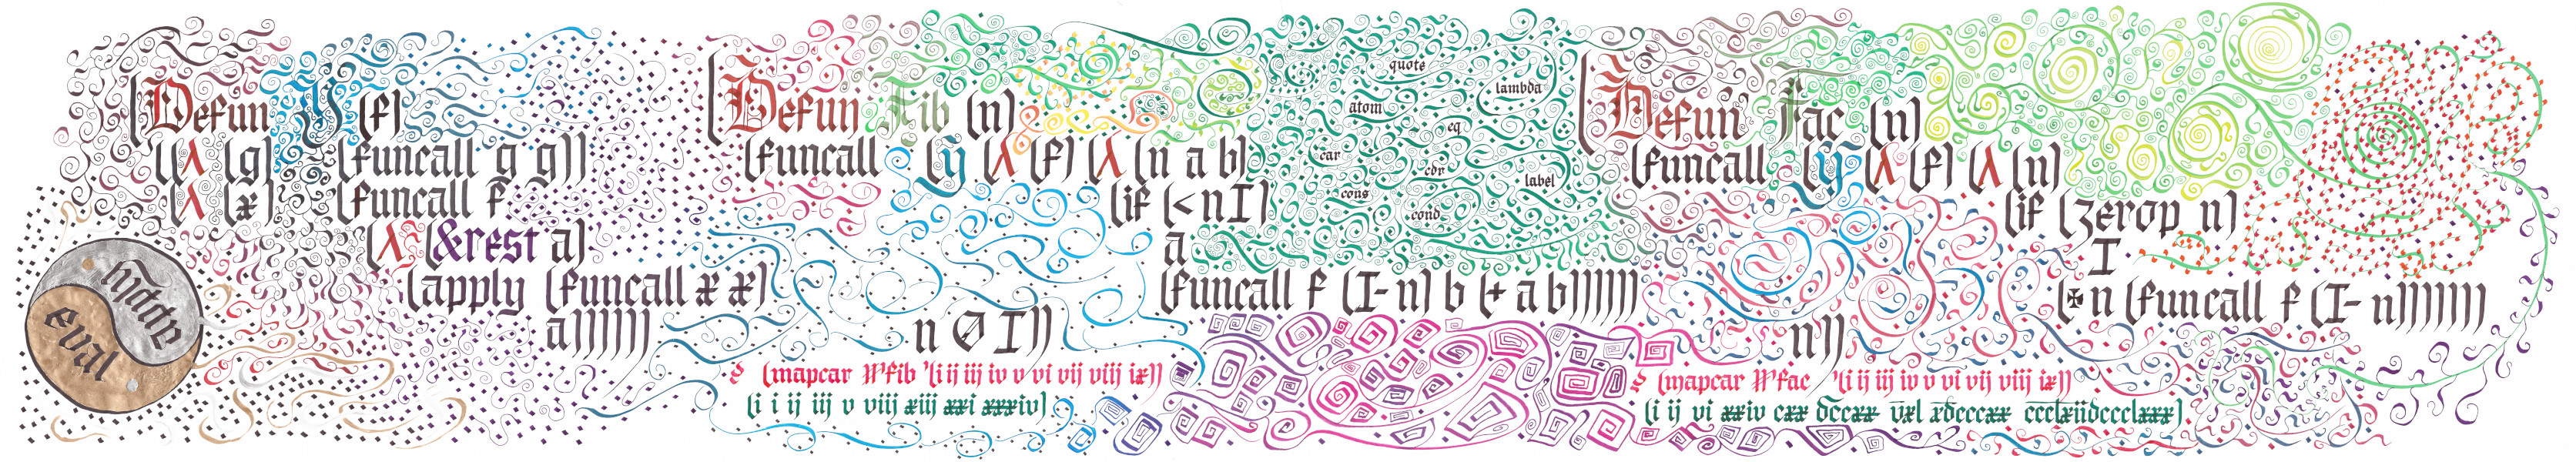 (Defun Y (f)
((λ (g) (funcall g g))
(λ (x) (funcall f
(λ (&rest a)
(apply (funcall x x)
a))))))
apply
eval
(Defun Fib (n)
(funcall (y (λ (f) (λ (n a b)
(if (< n I)
a
(funcall f (I- n) b (+ a b))))))
n 0 I))
(mapcar #'fib '(i ij iij iv v vi vij viij ix))
(i i ij iij v viij xiij xxi xxxiv)
quote
lambda
atom
eq
car
cdr
label
cons
cond
(Defun Fac (n)
(funcall (y (λ (f) (λ (n)
(if (zerop n)
I
(✠ n (funcall f (I- n)))))))
n))
(mapcar #'fac '(i ij iij iv v vi vij viij ix))
(i ij vi xxiv cxx dccxx v̅xl x̅l̅dcccxx